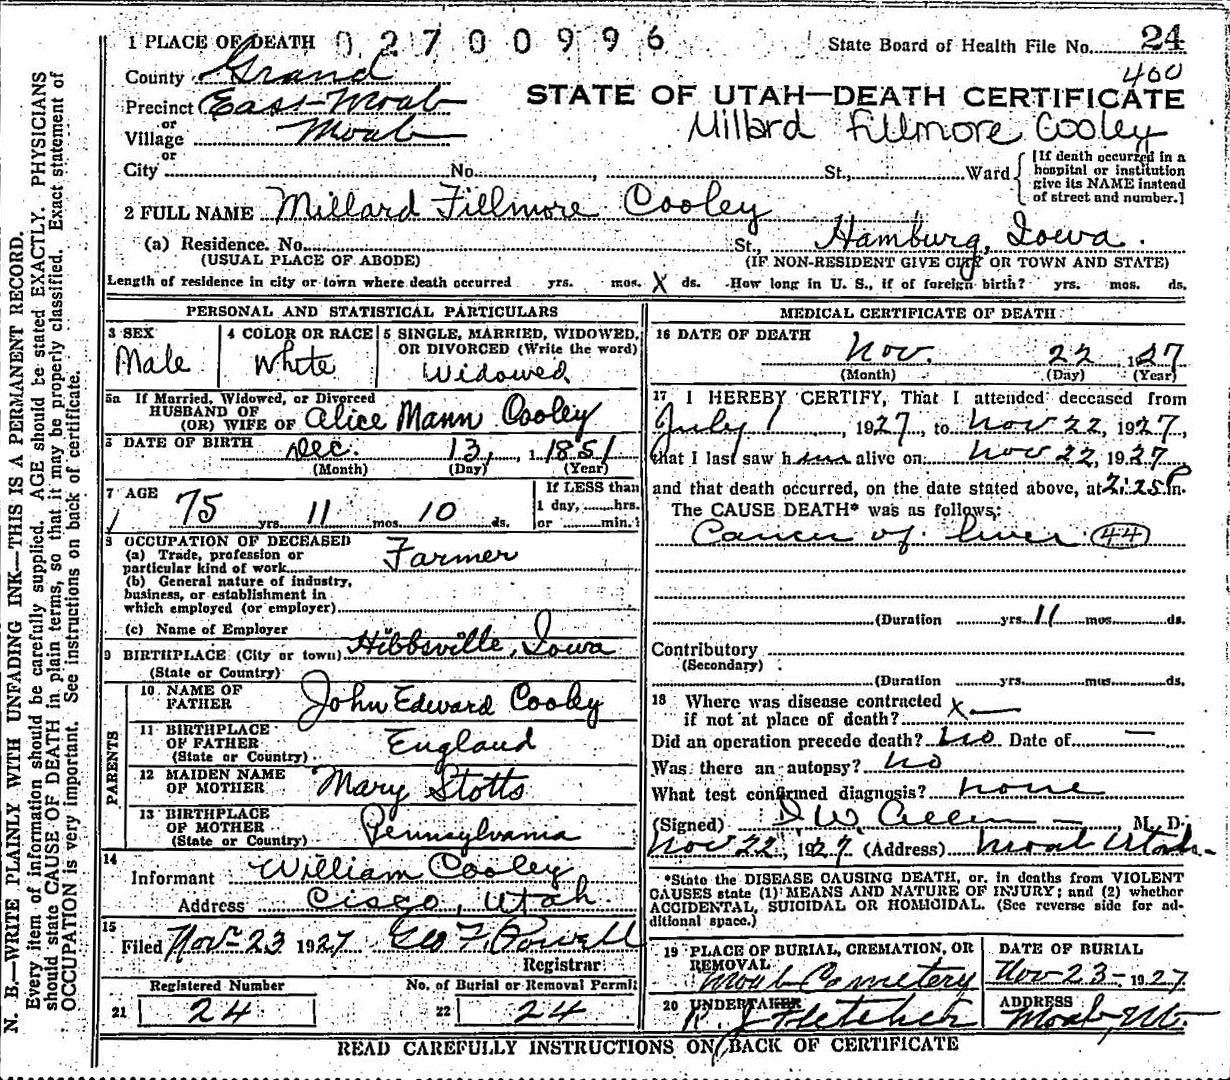 1 PLACE OF DEATH 02700996
State Board of Health File No. 24
400
County Grand
STATE OF UTAH—DEATH CERTIFICATE
Precinct East Moab
Millard Fillmore Cooley
or
Village Moab
or
City No. , St., Ward
[If death occurred in a hospital or institution give its NAME instead of street and number.]
2 FULL NAME Millard Fillmore Cooley
(a) Residence. No. St., Hamburg, Iowa.
(USUAL PLACE OF ABODE) (IF NON-RESIDENT GIVE CITY OR TOWN AND STATE)
Length of residence in city or town where death occurred yrs. mos. X ds. How long in U. S., if of foreign birth? yrs. mos. ds.
PERSONAL AND STATISTICAL PARTICULARS
3 SEX
Male
4 COLOR OR RACE
White
5 SINGLE, MARRIED, WIDOWED,
OR DIVORCED (Write the word)
Widowed
5a If Married, Widowed, or Divorced
HUSBAND OF
(OR) WIFE OF Alice Mann Cooley
DATE OF BIRTH Dec. 13, 1851
(Month) (Day) (Year)
7 AGE
75 yrs. 11 mos. 10 ds.
If LESS than
1 day, hrs.
or min.
8 OCCUPATION OF DECEASED
(a) Trade, profession or
particular kind of work Farmer
(b) General nature of industry,
business, or establishment in
which employed (or employer)
(c) Name of Employer
9 BIRTHPLACE (City or town) Hibbsville, Iowa
(State or Country)
PARENTS
10 NAME OF
FATHER John Edward Cooley
11 BIRTHPLACE
OF FATHER England
(State or Country)
12 MAIDEN NAME
OF MOTHER Mary Stotts
13 BIRTHPLACE
OF MOTHER Pennsylvania
(State or Country)
14
Informant William Cooley
Address Cisco, Utah.
15
Filed Nov 23 1927 Geo F. Powell
Registrar
Registered Number
21 24
No. of Burial or Removal Permit
22 24
MEDICAL CERTIFICATE OF DEATH
16 DATE OF DEATH
Nov. 22 1927
(Month) (Day) (Year)
17 I HEREBY CERTIFY, That I attended deceased from
July 1, 1927, to Nov 22, 1927,
that I last saw him alive on Nov 22, 1927
and that death occurred, on the date stated above, at 2:25 P m.
The CAUSE DEATH* was as follows:
Cancer of liver 44
(Duration yrs. 11 mos. ds.
Contributory
(Secondary)
(Duration yrs. mos. ds.
18 Where was disease contracted
if not at place of death? X —
Did an operation precede death? No Date of —
Was there an autopsy? No
What test confirmed diagnosis? none
(Signed) I W Allen — M. D.
Nov 22, 1927 (Address) Moab Utah.
*State the DISEASE CAUSING DEATH, or, in deaths from VIOLENT
CAUSES state (1) MEANS AND NATURE OF INJURY; and (2) whether
ACCIDENTAL, SUICIDAL OR HOMICIDAL. (See reverse side for ad-
ditional space.)
19 PLACE OF BURIAL, CREMATION, OR
REMOVAL
Moab Cemetery
DATE OF BURIAL
Nov 23 - 1927
20 UNDERTAKER
R. J. Fletcher
ADDRESS
Moab, Ut.
READ CAREFULLY INSTRUCTIONS ON BACK OF CERTIFICATE
N. B.—WRITE PLAINLY WITH UNFADING INK—THIS IS A PERMANENT RECORD.
Every item of information should be carefully supplied. AGE should be stated EXACTLY. PHYSICIANS
should state CAUSE OF DEATH in plain terms, so that it may be properly classified. Exact statement of
OCCUPATION is very important. See instructions on back of certificate.